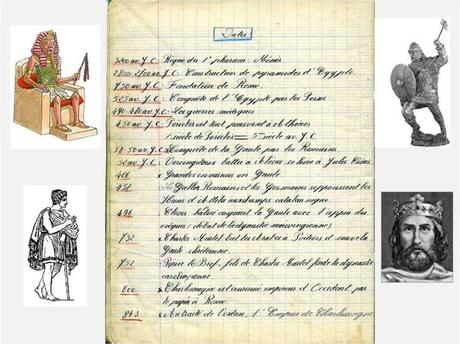 Dates
3200 av. J.C. Règne du 1er pharaon Ménès
Construction de pyramides d'Egypte.
750 av. J.C. Fondation de Rome.
525 av. J.C. Conquête de l'Egypte par les Perses
490-480 av. J.C. Les guerres médiques
450 av. J.C. Périclès est tout puissant à Athènes
siècle de Périclès = 5ème siècle av. J.C.
58-50 av. J.C. Conquête de la Gaule par les Romains.
52 av. J.C. Vercingétorix battu à Alésia se rend à Jules César
406 x Grandes invasions en Gaule.
451 Gallo Romains et les Germains repoussent les
Huns d'Attila aux champs catalauniques
496 x Clovis conquiert la Gaule avec l'appui des
évêques (début de la dynastie mérovingienne)
732 x Charles Martel bat les Arabes à Poitiers et sauve la
Gaule chrétienne.
752 Pépin le Bref, fils de Charles Martel fonde la dynastie
carolingienne
800 x Charlemagne est couronné empereur d'Occident par
le pape à Rome.
843 x Au traité de Verdun, l'Empire de Charlemagne